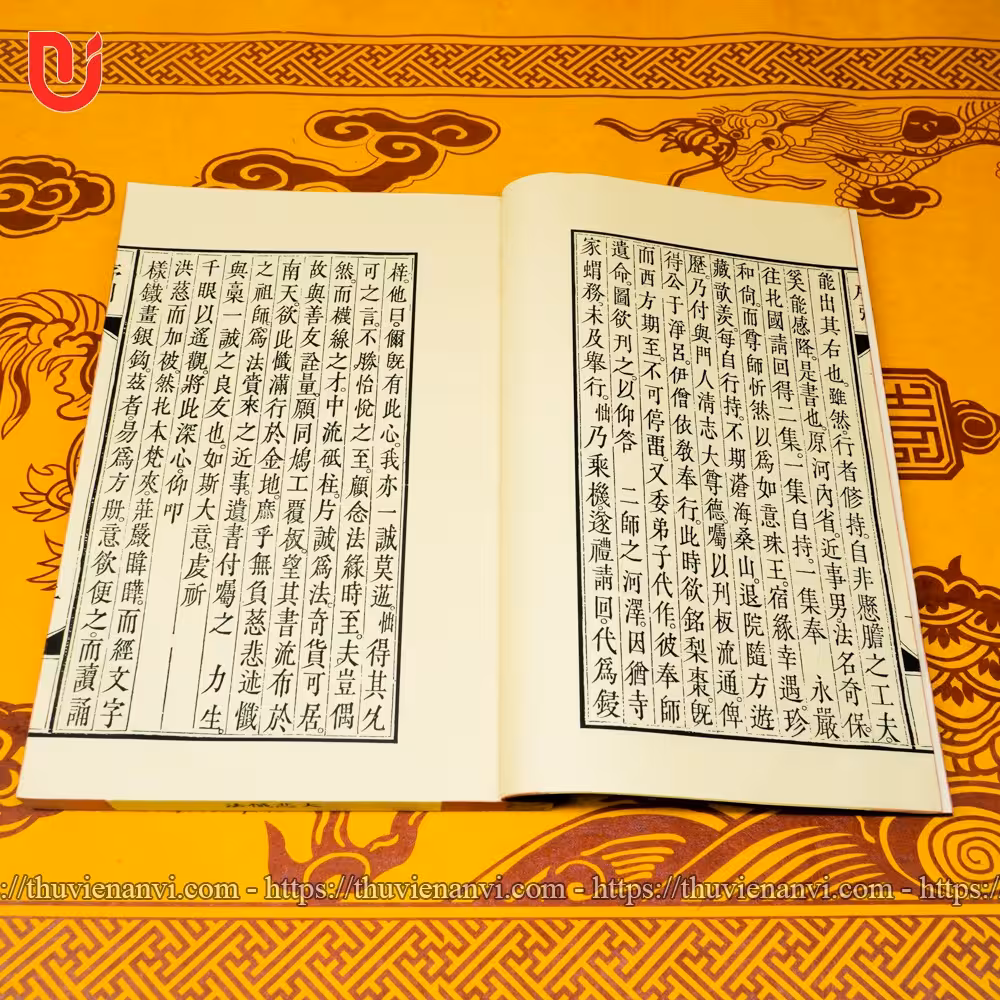 能出其右也。雖然。行者修持。自非懸膽之工夫。
奚能感降。是書也。原河內省。近事男。法名奇保。
往北國請回得二集。一集自持。一集奉 永嚴
和尙。而尊師忻然以爲如意珠王。宿緣幸遇。珍
藏歆羡。每自行持。不期滄海桑山。退院隨方遊
歷。乃付與門人淸志大尊德。囑以刊板流通。俾
得公于淨呂。伊僧依敎奉行。此時欲銘梨棗。旣
而西方期至。不可停畱。又委弟子代作。彼奉師
遺命。圖欲刊之以仰答 二師之河澤。因猶寺
家蝟務。未及舉行。㤕乃乘機。遂禮請回。代爲鋟
梓。他曰。爾旣有此心。我亦一誠莫逝。㤕得其允
可之言。不勝怡悅之至。顧念法緣時至。夫豈偶
然。而襪線之才。中流砥柱。片誠爲法。奇貨可居。
故與善友詮量。願同鳩工覆板。望其書流布於
南天。欲此懺滿行於金地。庶乎無負慈悲述懺
之祖師。爲法賷來之近事。遺書付囑之 力生。
與稾一誠之良友也。如斯大意。虔祈
千眼以遙觀。將此深心。仰叩
洪慈而加被。然北本梵夾。莊嚴暐曄。而經文字
樣鐵畫銀鈎。玆者。易爲方册。意欲便之。而讀誦
大悲懺法
https://thuvienanvi.com - https://thuvienanvi.com - https://thuvienanvi.com